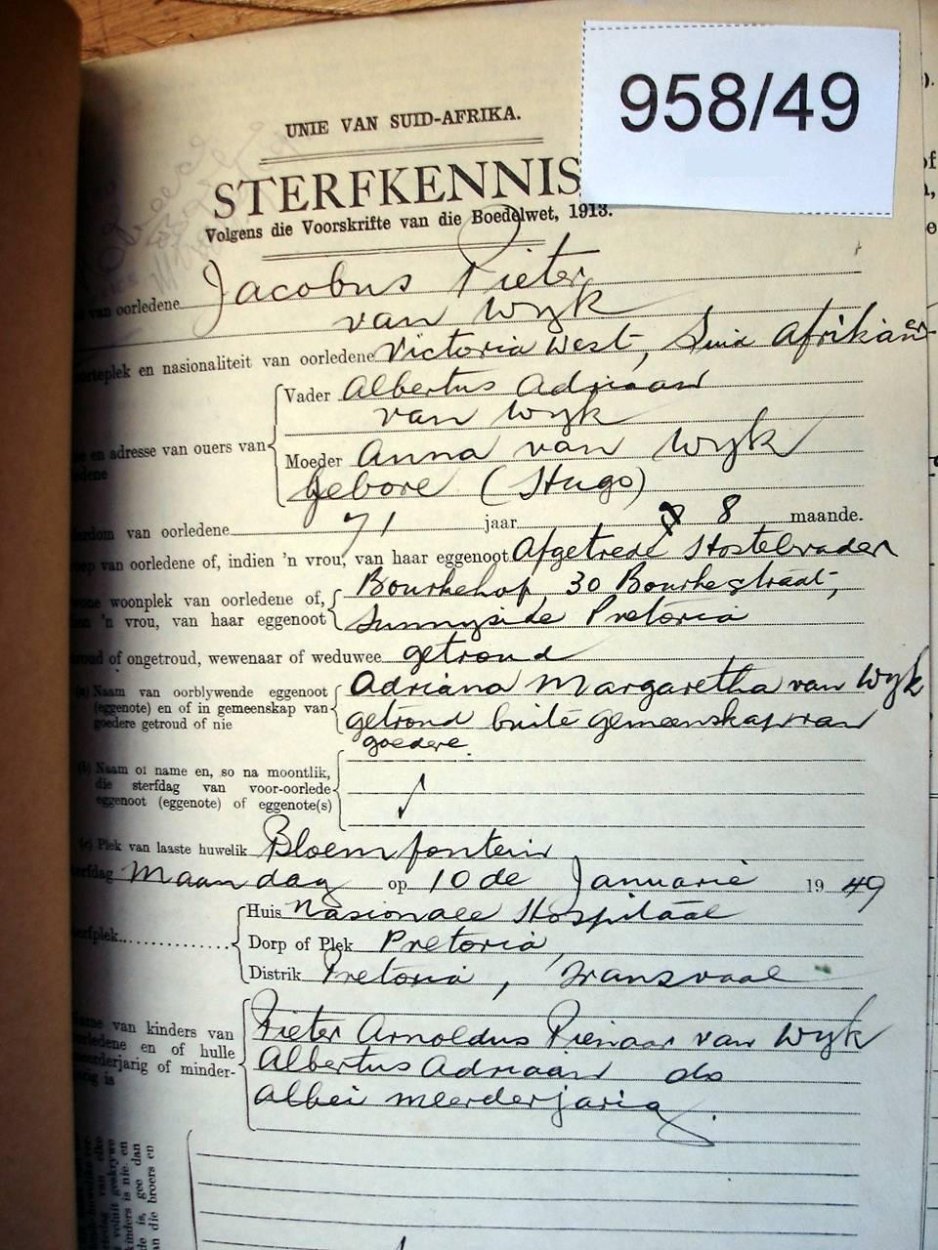 958/49
UNIE VAN SUID-AFRIKA.
STERFKENNIS
Volgens die Voorskrifte van die Boedelwet, 1913.
van oorledene Jacobus Pieter
van Wyk
en nasionaliteit van oorledene Victoria West, Suid Afrikaner
Vader Albertus Adriaan
van Wyk
en adresse van ouers van
Moeder Anna van Wyk
gebore (Hugo)
van oorledene 71 jaar 8 maande.
van oorledene of, indien 'n vrou, van haar eggenoot Afgetrede Hostelvader
woonplek van oorledene of, Bourkehof, 30 Bourkestraat,
'n vrou, van haar eggenoot Sunnyside Pretoria
of ongetroud, wewenaar of weduwee getroud
(a) Naam van oorblywende eggenoot Adriana Margaretha van Wyk
(eggenote) en of in gemeenskap van
goedere getroud of nie getroud buite gemeenskap van
goedere
(b) Naam of name en, so na moontlik,
die sterfdag van voor-oorlede
eggenoot (eggenote) of eggenote(s)
(c) Plek van laaste huwelik Bloemfontein
Maandag op 10de Januarie 1949
Huis Nasionale Hospitaal
Dorp of Plek Pretoria,
Distrik Pretoria, Transvaal
van kinders van Pieter Arnoldus Pienaar van Wyk
en of hulle
of minder- Albertus Adriaan do
is Albei meerderjarig.